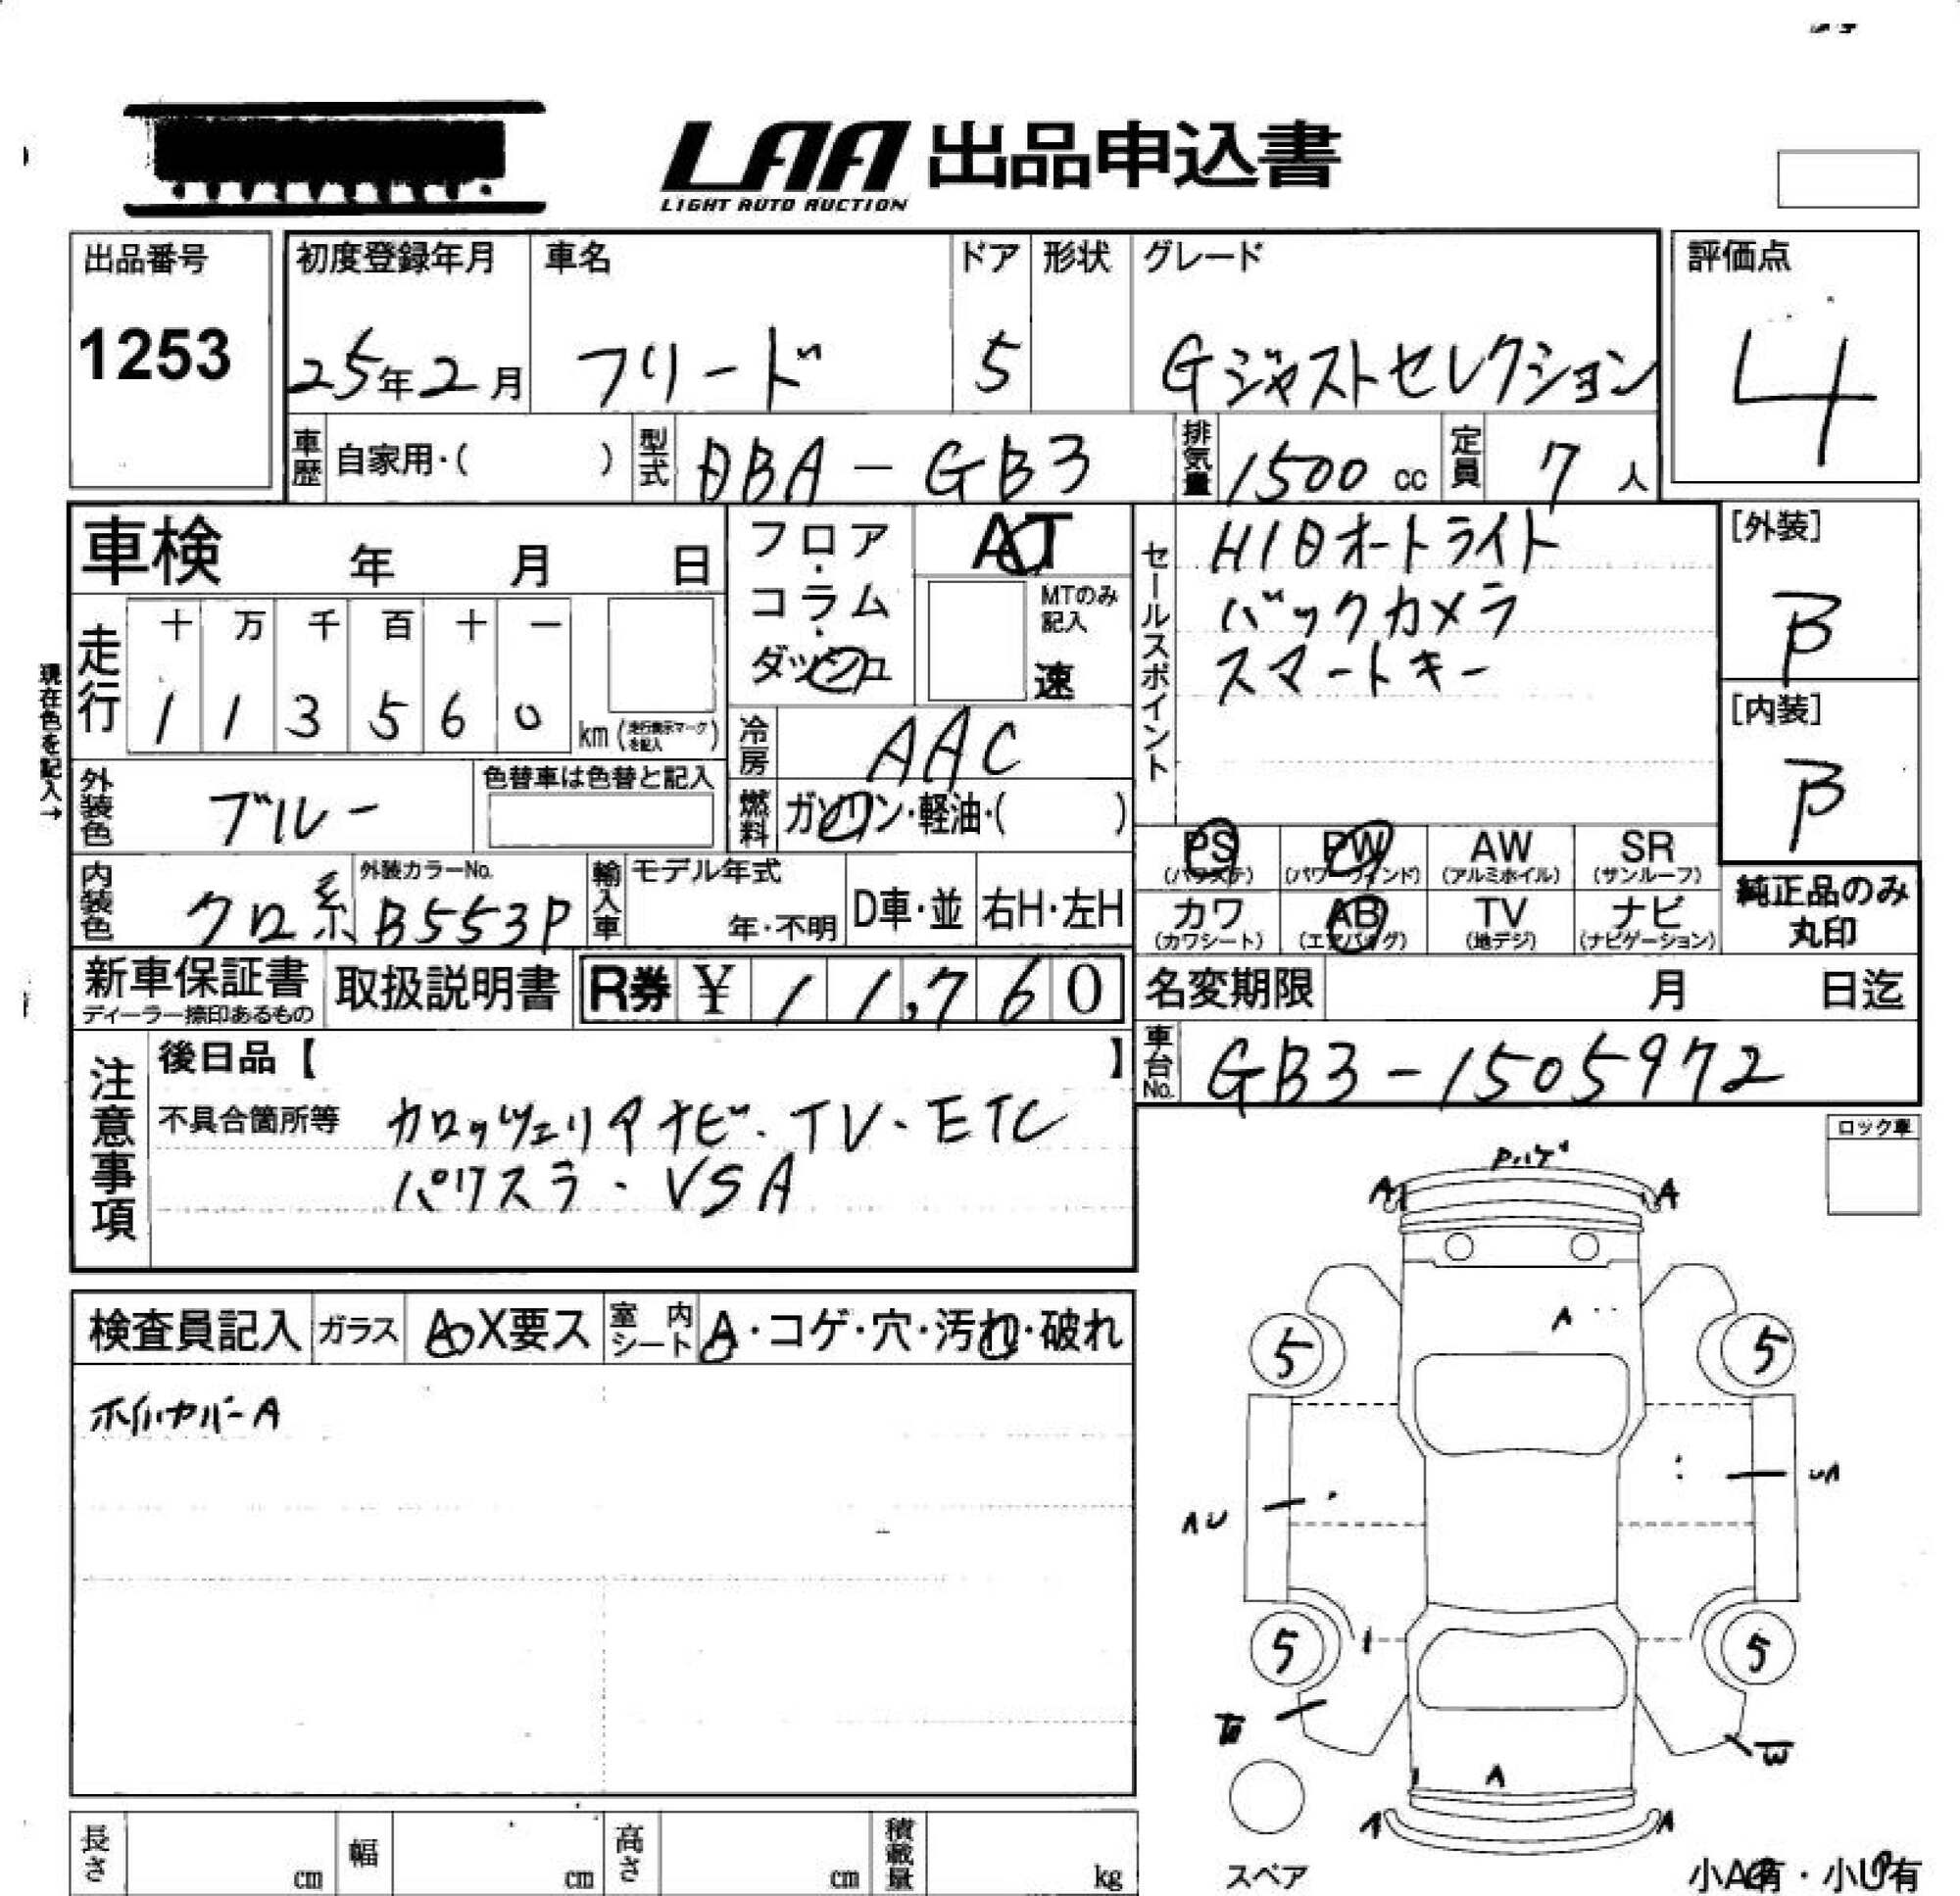 LAA 出品申込書
LIGHT AUTO AUCTION
出品番号
1253
初度登録年月
25年2月
車名
フリード
ドア
5
形状
グレード
Gジャストセレクション
評価点
4
車歴 自家用・( )
型式 DBA-GB3
排気量 1500 cc
定員 7 人
車検 年 月 日
フロア・コラム・ダッシュ
AT
MTのみ記入
速
セールスポイント
HIDオートライト
バックカメラ
スマートキー
[外装]
B
[内装]
B
現在色を記入→
走行
十 万 千 百 十 一
1 1 3 5 6 0 km (走行表示マークを記入)
冷房 AAC
燃料 ガソリン・軽油・( )
外装色 ブルー
色替車は色替と記入
内装色 クロ系
外装カラーNo.
B553P
輸入車
モデル年式
年・不明
D車・並
右H・左H
PS (パワステ)
PW (パワーウィンド)
AW (アルミホイル)
SR (サンルーフ)
カワ (カワシート)
AB (エアバッグ)
TV (地デジ)
ナビ (ナビゲーション)
純正品のみ
丸印
新車保証書
ディーラー捺印あるもの
取扱説明書
R券 ¥ 11,760
名変期限 月 日迄
車台No. GB3-1505972
注意事項
後日品【 】
不具合箇所等 カロッツェリアナビ・TV・ETC
パワスラ・VSA
ロック車
検査員記入
ガラス A・X要ス
室内シート A・コゲ・穴・汚れ・破れ
ホイルカバーA
A A
A
5 5
5 5
A
A A
スペア
小A有・小U有
長さ cm
幅 cm
高さ cm
積載量 kg